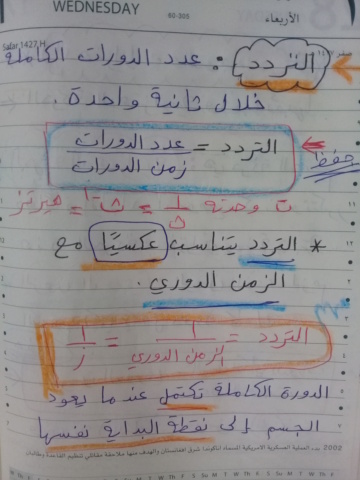 WEDNESDAY
60-305
الأربعاء
Safar 1427 H
التردد : عدد الدورات الكاملة
خلال ثانية واحدة .
حفظ
التردد = عدد الدورات / زمن الدورات
ت وحدته 1/ث = ث⁻¹ = هيرتز
* التردد يتناسب عكسيًا مع
الزمن الدوري .
التردد = 1/الزمن الدوري = 1/ز
الدورة الكاملة تكتمل عندما يعود
الجسم إلى نقطة البداية نفسها